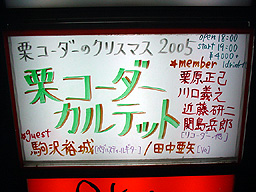 栗コーダーのクリスマス2005
open 18:00
start 19:00
¥4000
*member
栗原正己
川口義之
近藤研二
関島岳郎
[リコーダー、他]
栗コーダー
カルテット
*guest
駒沢裕城[ペダルスティールギター]/田中亜矢[Vo]